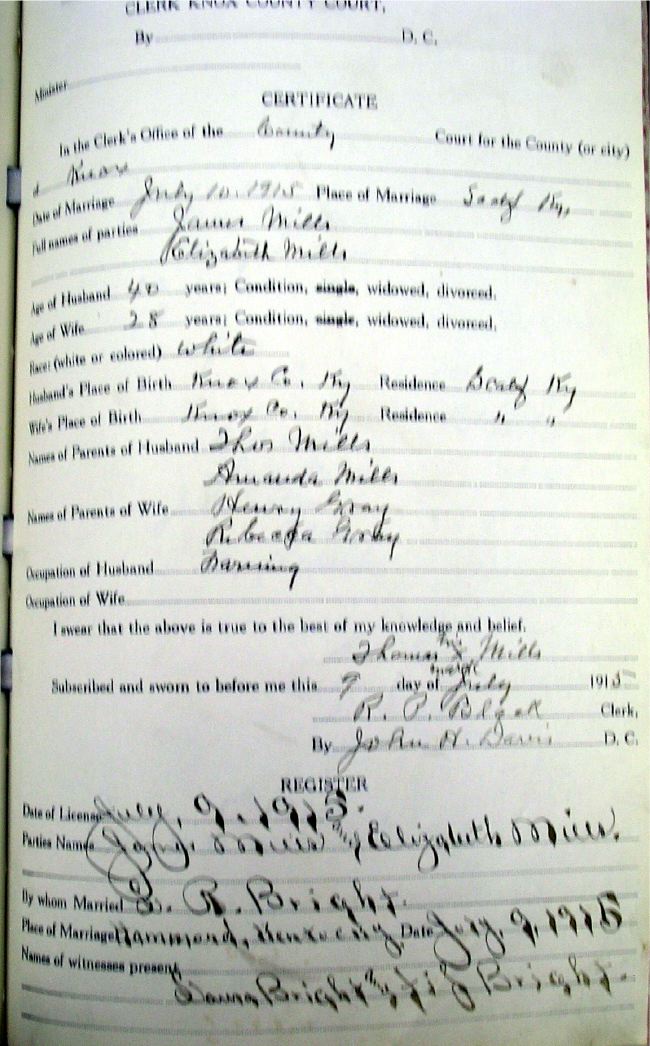 CLERK KNOX COUNTY COURT,
By D. C.
Minister
CERTIFICATE
In the Clerk's Office of the County Court for the County (or city)
Knox
Date of Marriage July 10. 1915 Place of Marriage Scalf Ky,
Full names of parties James Mills
Elizabeth Mills
Age of Husband 40 years; Condition, single, widowed, divorced.
Age of Wife 28 years; Condition, single, widowed, divorced.
Race: (white or colored) White
Husband's Place of Birth Knox Co, Ky Residence Scalf Ky
Wife's Place of Birth Knox Co. Ky Residence " "
Names of Parents of Husband Thos Mills
Amanda Mills
Names of Parents of Wife Henry Gray
Rebecca Gray
Occupation of Husband Farming
Occupation of Wife
I swear that the above is true to the best of my knowledge and belief.
his
Thomas x Mills
mark
Subscribed and sworn to before me this 9 day of July 1915
R. P. Black Clerk,
By John H. Davis D. C.
REGISTER
Date of License July, 9, 1915.
Parties Names Mills Elizabeth Mills.
By whom Married R. Bright.
Place of Marriage Hammond, Date 9, 1915
Names of witnesses present
Bright Bright.